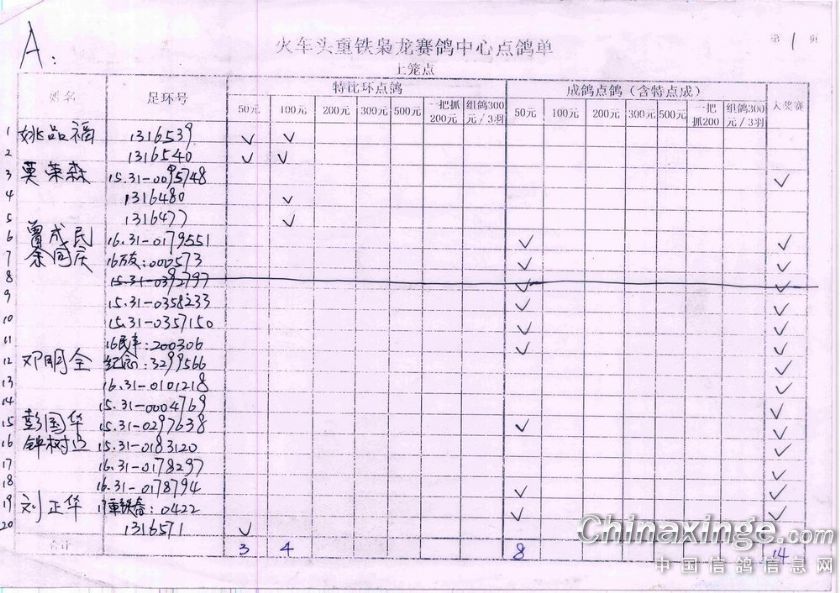 A:
火车头重铁枭龙赛鸽中心点鸽单
第 1 页
上笼点
姓名 足环号 特比环点鸽 成鸽点鸽（含特点成） 大奖赛
50元 100元 200元 300元 500元 一把抓200元 组鸽300元/3羽 50元 100元 200元 300元 500元 一把抓200 组鸽300元/3羽
1 姚品福 1316539 ✓ ✓
2 1316540 ✓ ✓
3 莫荣森 15.31-0095748 ✓
4 1316480 ✓
5 1316477 ✓
6 曾成民 16.31-0179551 ✓ ✓
7 余国庆 16万友:000573 ✓ ✓
8 15.31-0392797 ✓ ✓
9 15.31-0358233 ✓ ✓
10 15.31-0357150 ✓ ✓
11 16民丰:200306 ✓ ✓
12 邓明全 纪念:3299566 ✓
13 16.31-0101218 ✓
14 15.31-0004769 ✓
15 彭国华 15.31-0297638 ✓ ✓
16 钟树 15.31-0183120 ✓
17 16.31-0178297 ✓
18 16.31-0178794 ✓ ✓
19 刘正华 :0422 ✓ ✓
20 1316571 ✓
合计 3 4 8 14
Chinaxinge.com
中国信鸽信息网